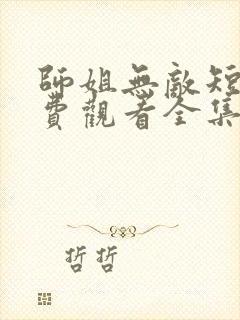 師姐無敵短
費觀看全集
哲哲